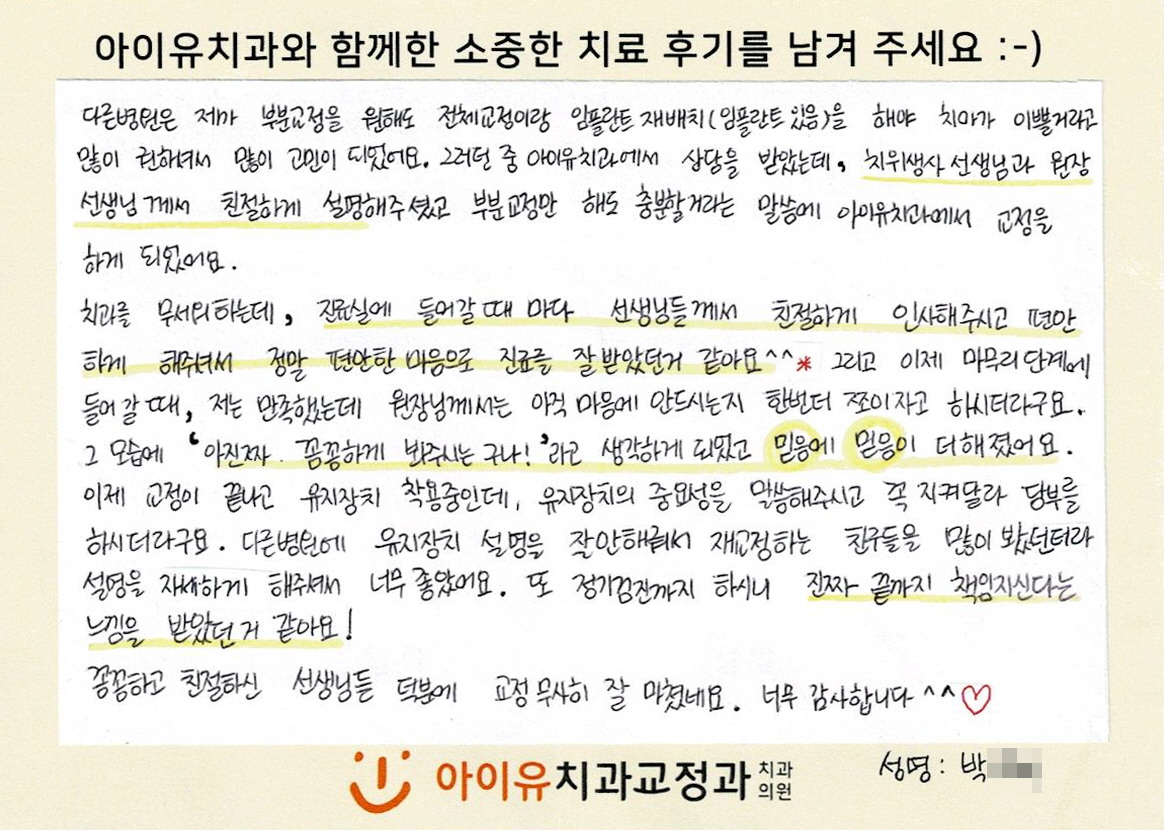 아이유치과와 함께한 소중한 치료 후기를 남겨 주세요 :-)
다른병원은 제가 부분교정을 원해도 전체교정이랑 임플란트 재배치(임플란트 있음)을 해야 치아가 이쁠거라고
많이 권하셔서 많이 고민이 되었어요. 그러던 중 아이유치과에서 상담을 받았는데, 치위생사 선생님과 원장
선생님 께서 친절하게 설명해주셨고 부분교정만 해도 충분할거라는 말씀에 아이유치과에서 교정을
하게 되었어요.
치과를 무서워하는데, 진료실에 들어갈 때 마다 선생님들께서 친절하게 인사해주시고 편안
하게 해주셔서 정말 편안한 마음으로 진료를 잘 받았던거 같아요^^* 그리고 이제 마무리 단계에
들어 갈 때, 저는 만족했는데 원장님께서는 아직 마음에 안드시는지 한번더 쪼이자고 하시더라구요.
그 모습에 '아진짜 꼼꼼하게 봐주시는 구나!'라고 생각하게 되었고 믿음에 믿음이 더해졌어요.
이제 교정이 끝나고 유지장치 착용중인데, 유지장치의 중요성을 말씀해주시고 꼭 지켜달라 당부를
하시더라구요. 다른병원에 유지장치 설명을 잘안해줘서 재교정하는 친구들을 많이 봤던터라
설명을 자세하게 해주셔서 너무 좋았어요. 또 정기검진까지 하시니 진짜 끝까지 책임지신다는
느낌을 받았던 거 같아요!
꼼꼼하고 친절하신 선생님들 덕분에 교정 무사히 잘 마쳤네요. 너무 감사합니다 ^^♡
성명 : 박
아이유치과교정과 치과의원